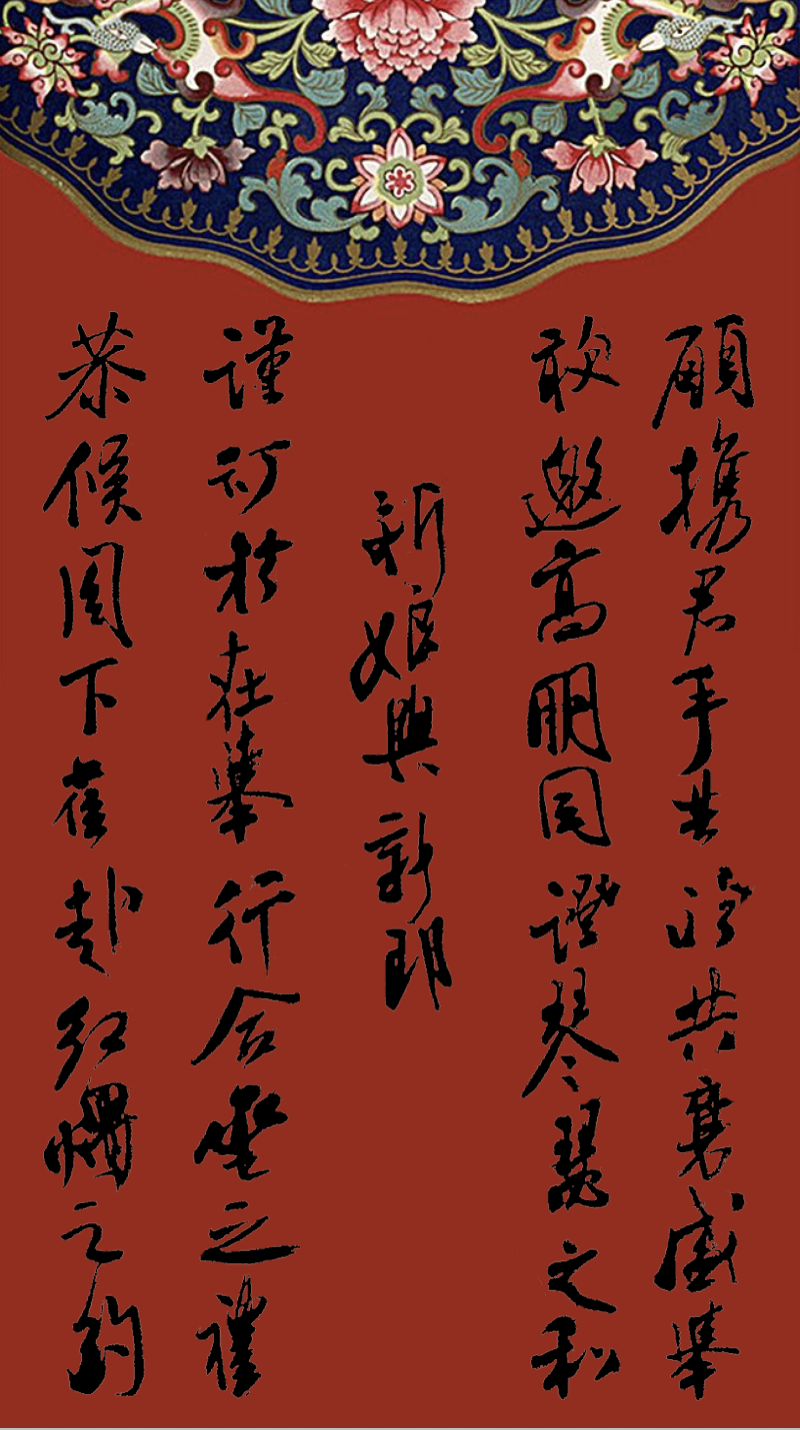 願攜君手共襄盛舉
敢邀高朋同證琴瑟之和
新娘與新郎
謹訂於在舉行合卺之禮
恭候閣下赴紅燭之約